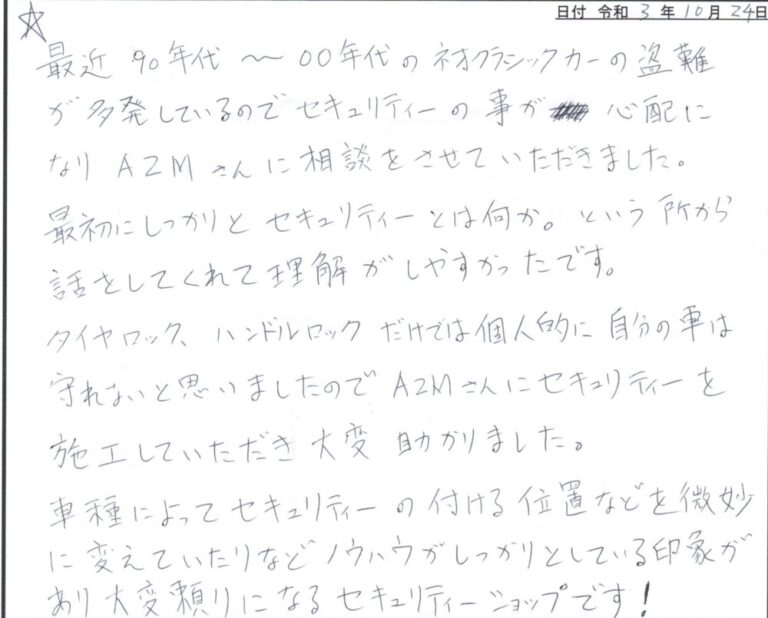 日付 令和 3 年 10 月 24日
最近 90年代 〜 00年代のネオクラシックカーの盗難
が多発しているのでセキュリティーの事が 心配に
なり A2M さんに相談をさせていただきました。
最初にしっかりと セキュリティーとは何か。という所から
話をしてくれて理解がしやすかったです。
タイヤロック、ハンドルロックだけでは個人的に自分の車は
守れないと思いましたので A2Mさんにセキュリティーを
施工していただき大変 助かりました。
車種によってセキュリティーの付ける位置などを微妙
に変えていたりなどノウハウがしっかりとしている印象が
あり大変頼りになるセキュリティーショップです!